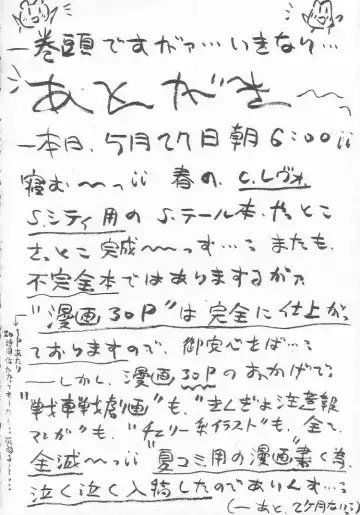 一巻頭ですがァ…いきなり…
あとがき〜〜
一本日、5月27日朝6:00ii
寝む〜〜っii 春の、C.レヴォ、
S.シティ用の S.テール本、やっとこ
さっとこ完成〜〜っす…。またも、
不完全本ではありまするが、
"漫画30P"は完全に仕上がっ
ておりますので、御安心をば…。
——しかし、漫画30Pのおかげで。
"戦車戦劇画"も、"きんぎょ注意報
マンガ"も、"チェリー イラスト"も、全て、
全滅〜〜っii "夏コミ用の漫画"書く為、
泣く泣く入稿したのでありんす…。
(一あと、2ヶ月ない)
1Pあたり